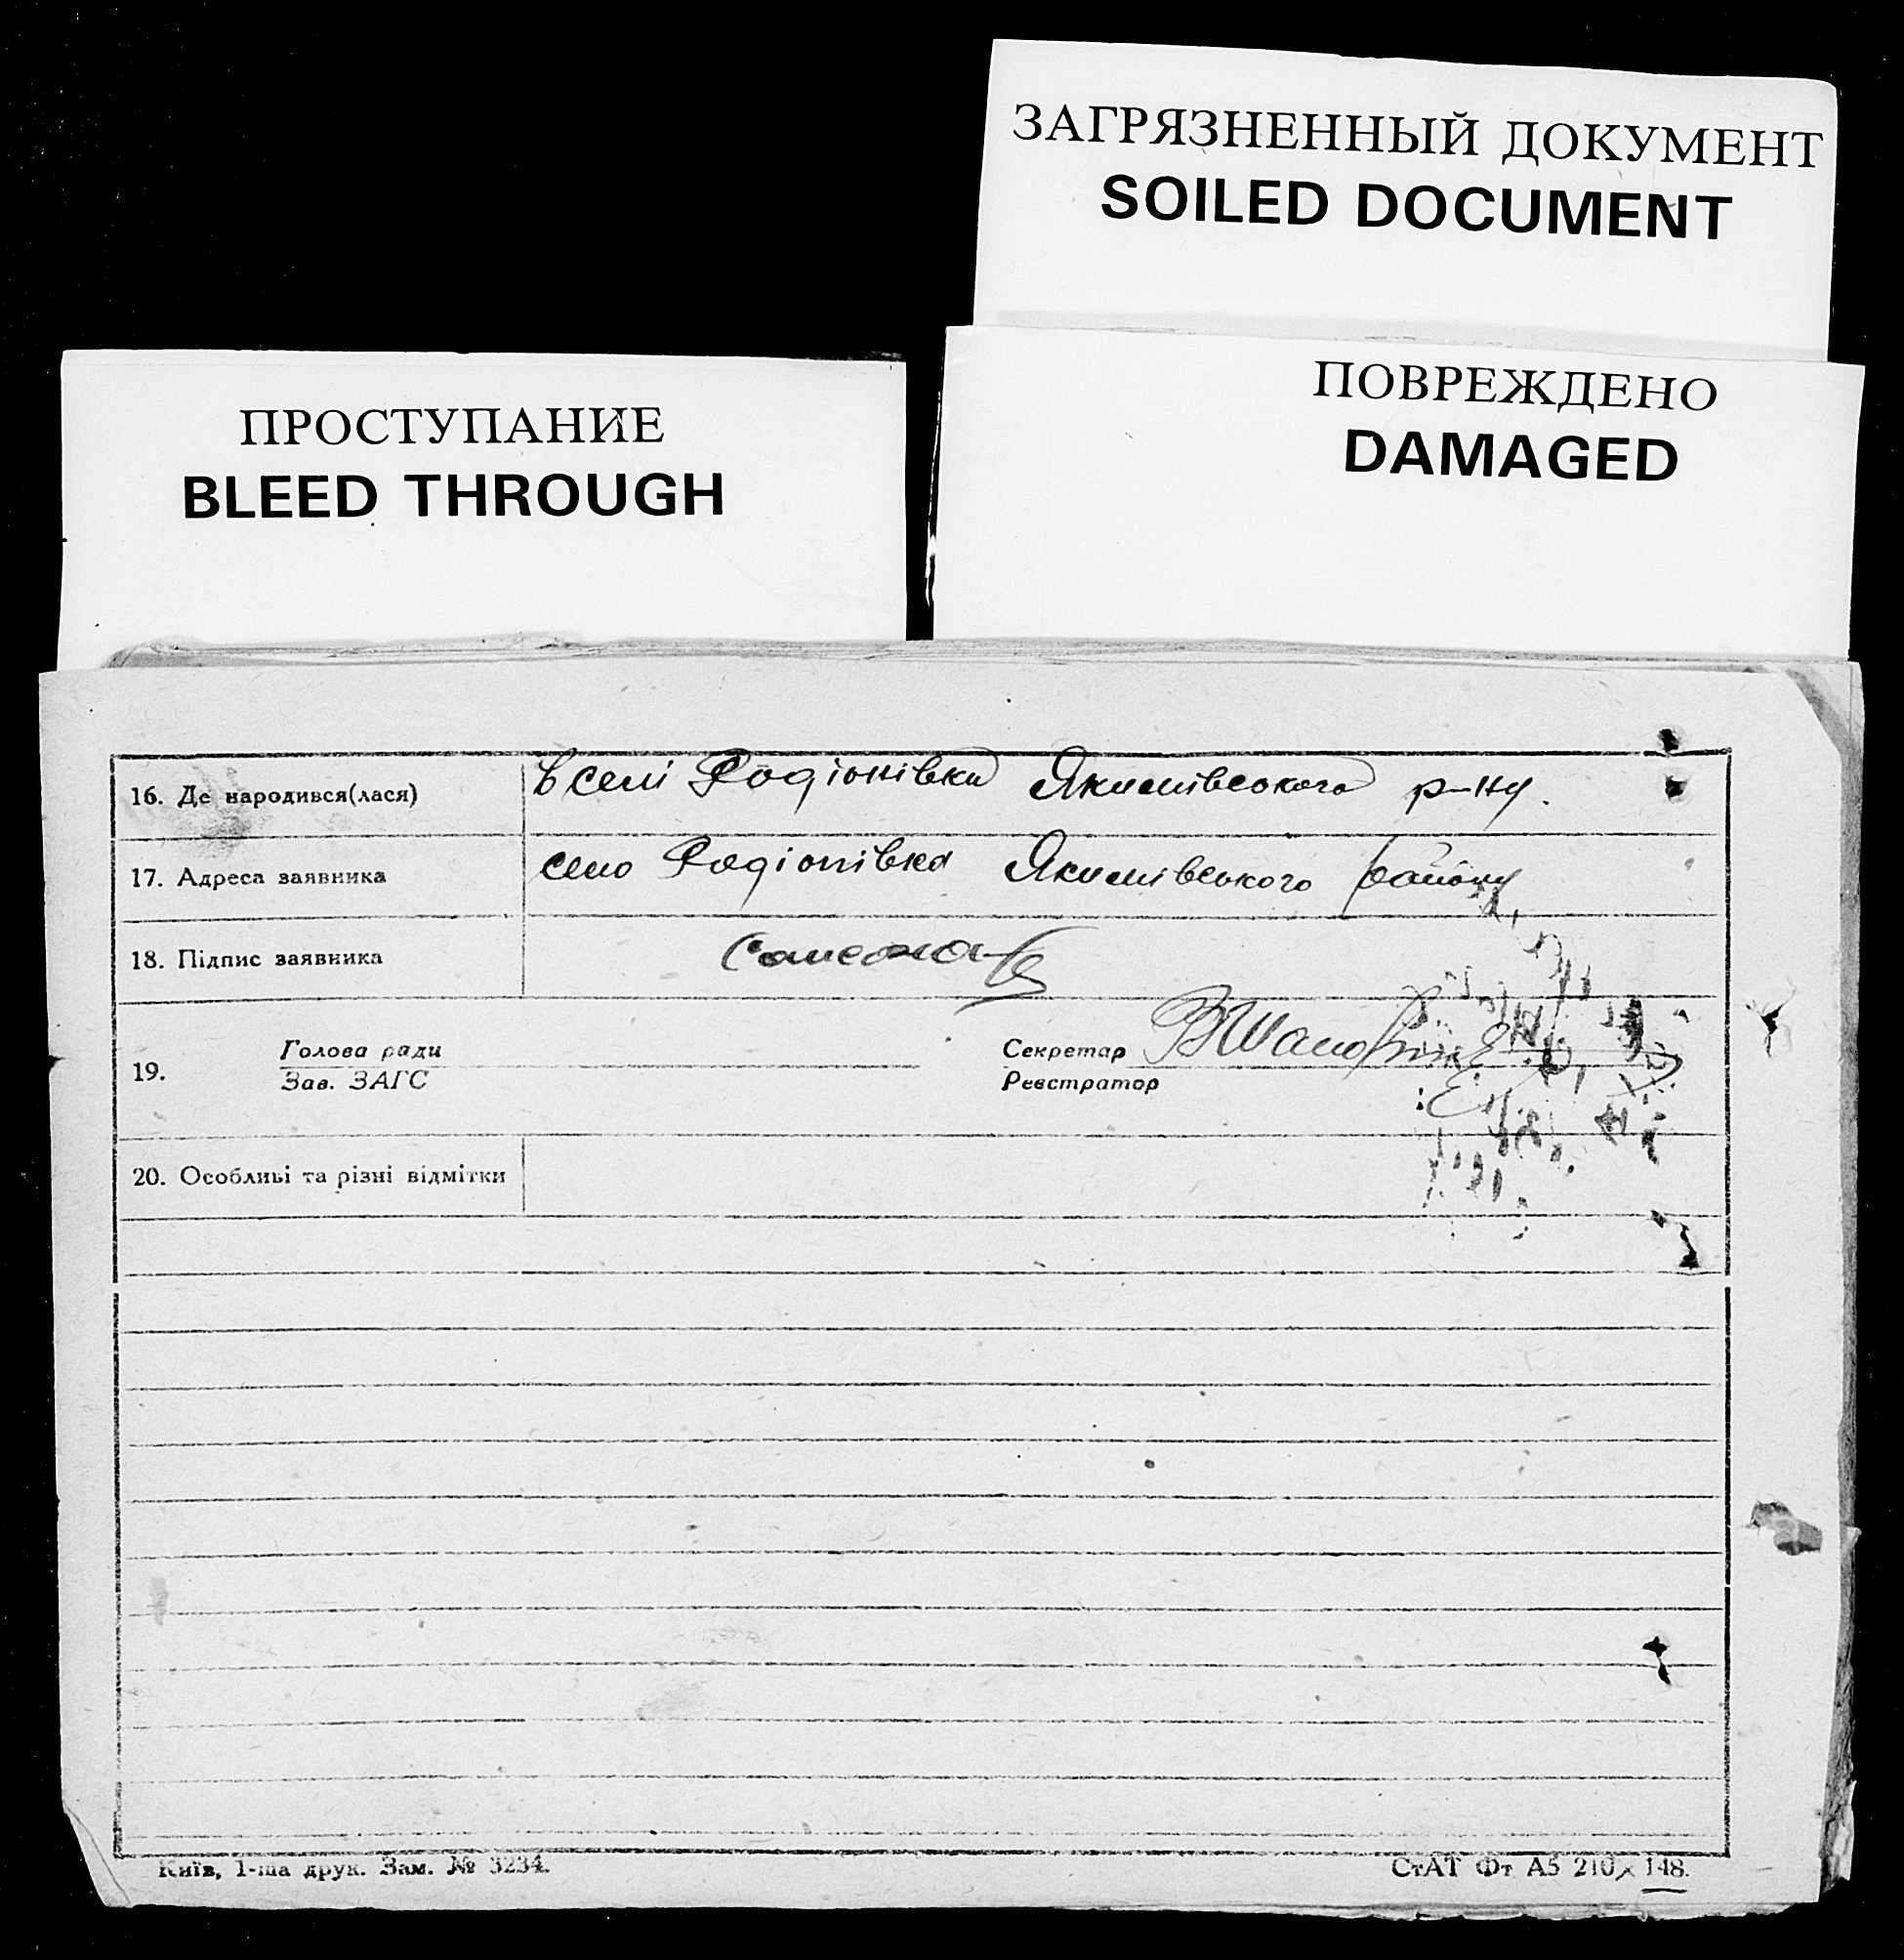 ЗАГРЯЗНЕННЫЙ ДОКУМЕНТ
SOILED DOCUMENT
ПРОСТУПАНИЕ
BLEED THROUGH
ПОВРЕЖДЕНО
DAMAGED
16. Де народився(лася) в селі Родіонівки Якимівського р-ну.
17. Адреса заявника село Родіонівка Якимівського району
18. Підпис заявника
19. Голова ради Секретар
Зав. ЗАГС Реєстратор
20. Особливі та різні відмітки
Київ, 1-ша друк. Зам. № 3234.
СтАТ Фт А5 210 × 148.